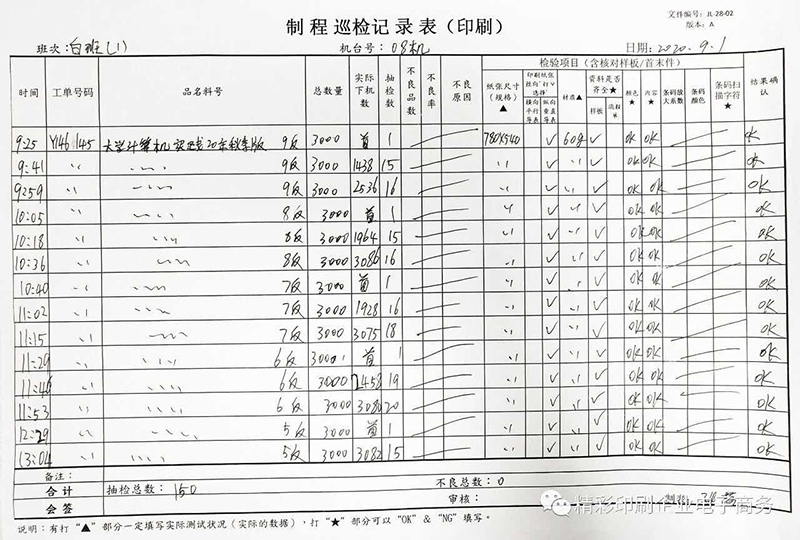 文件编号：JL-28-02
版本：A
制程巡检记录表（印刷）
班次：白班(1) 机台号：08机 日期：2020.9.1
时间 工单号码 产品名料号 总数量 实际下机数 抽检数 不良品数 不良率 不良原因 检验项目（含核对样板/首末件） 结果确认
纸张尺寸（规格）▲ 印刷纸张丝向"打∨选择" 横向平行导表 纵向垂直导表 材质▲ 资料是否齐全★ 样板 流程单 颜色★ 内容★ 条码放大系数 条码颜色 条码扫描字符★
9:25 Y146145 大学计算机 20东秋季版 9反 3000 首 1 780X540 ✓ 60g ✓ OK OK OK
9:41 〃 〃 9反 3000 1438 15 〃 ✓ 〃 ✓ OK OK OK
9:59 〃 〃 9反 3000 2536 16 〃 ✓ 〃 ✓ OK OK OK
10:05 〃 〃 8反 3000 首 1 〃 ✓ 〃 ✓ OK OK OK
10:18 〃 〃 8反 3000 1964 15 〃 ✓ 〃 ✓ OK OK OK
10:36 〃 〃 8反 3000 3086 16 〃 ✓ 〃 ✓ OK OK OK
10:40 〃 〃 7反 3000 首 1 〃 ✓ 〃 ✓ OK OK OK
11:02 〃 〃 7反 3000 1928 16 〃 ✓ 〃 ✓ OK OK OK
11:15 〃 〃 7反 3000 3075 18 〃 ✓ 〃 ✓ OK OK OK
11:29 〃 〃 6反 3000 首 1 〃 ✓ 〃 ✓ OK OK OK
11:46 〃 〃 6反 3000 2458 19 〃 ✓ 〃 ✓ OK OK OK
11:53 〃 〃 6反 3000 3080 20 〃 ✓ 〃 ✓ OK OK OK
12:29 〃 〃 5反 3000 首 1 〃 ✓ 〃 ✓ OK OK OK
13:04 〃 〃 5反 3000 3082 15 〃 ✓ 〃 ✓ OK OK OK
备注：
合计 抽检总数：150 不良总数：0
会签 审核： 制表：
说明：有打"▲"部分一定填写实际测试状况（实际的数据），打"★"部分可以"OK"&"NG"填写。
精彩印刷企业电子商务